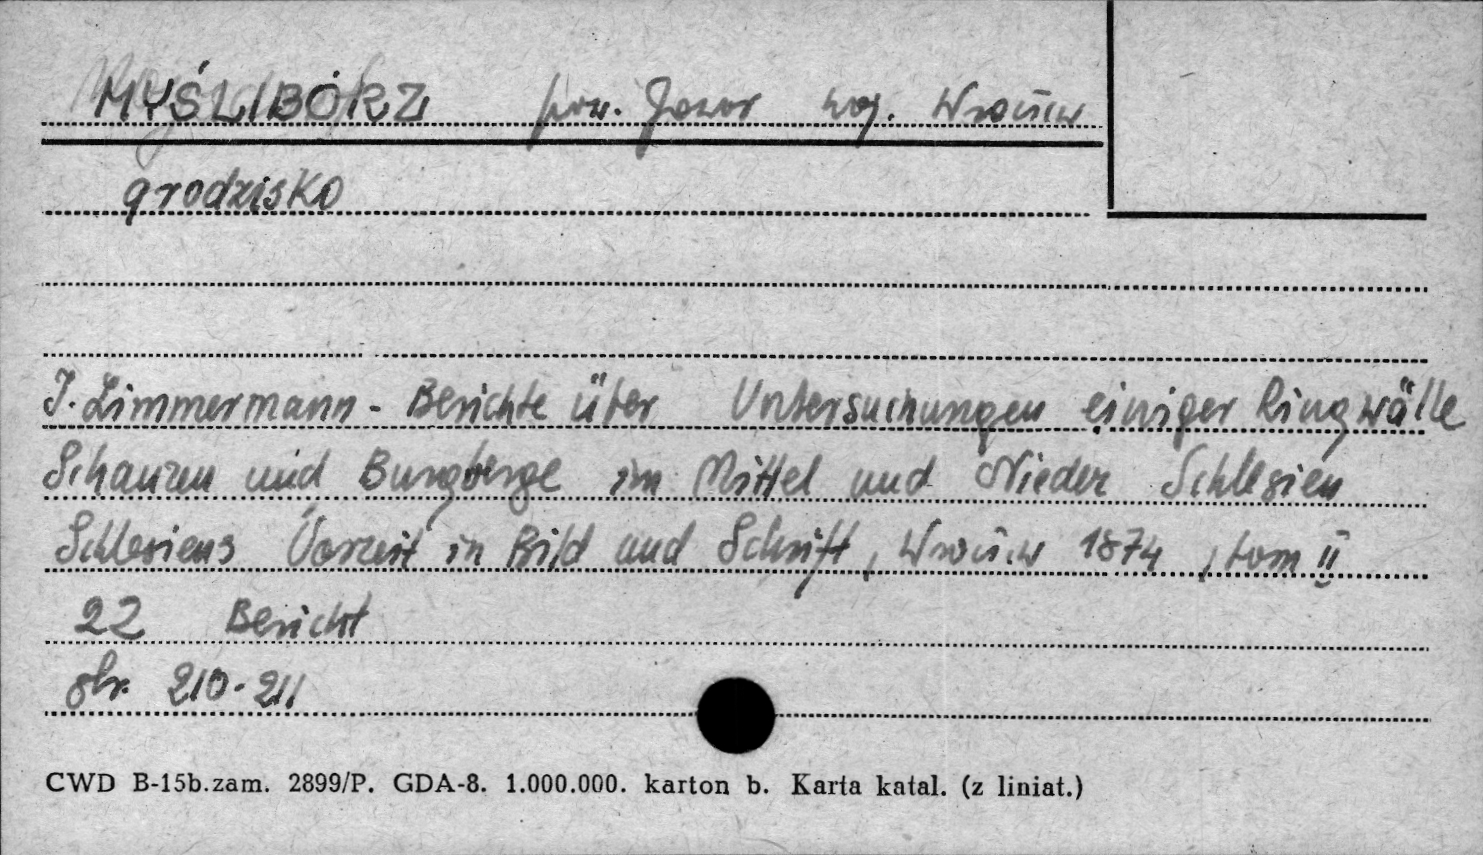 MYŚLIBÓRZ pow. Jawor woj. Wrocław
grodzisko
J. Zimmermann - Berichte über Untersuchungen einiger Ringwälle
Schanzen und Burgberge im Mittel und Nieder Schlesien
Schlesiens Vorzeit in Bild und Schrift, Wrocław 1874, tom II
22 Bericht
str. 210-211
CWD B-15b.zam. 2899/P. GDA-8. 1.000.000. karton b. Karta katal. (z liniat.)